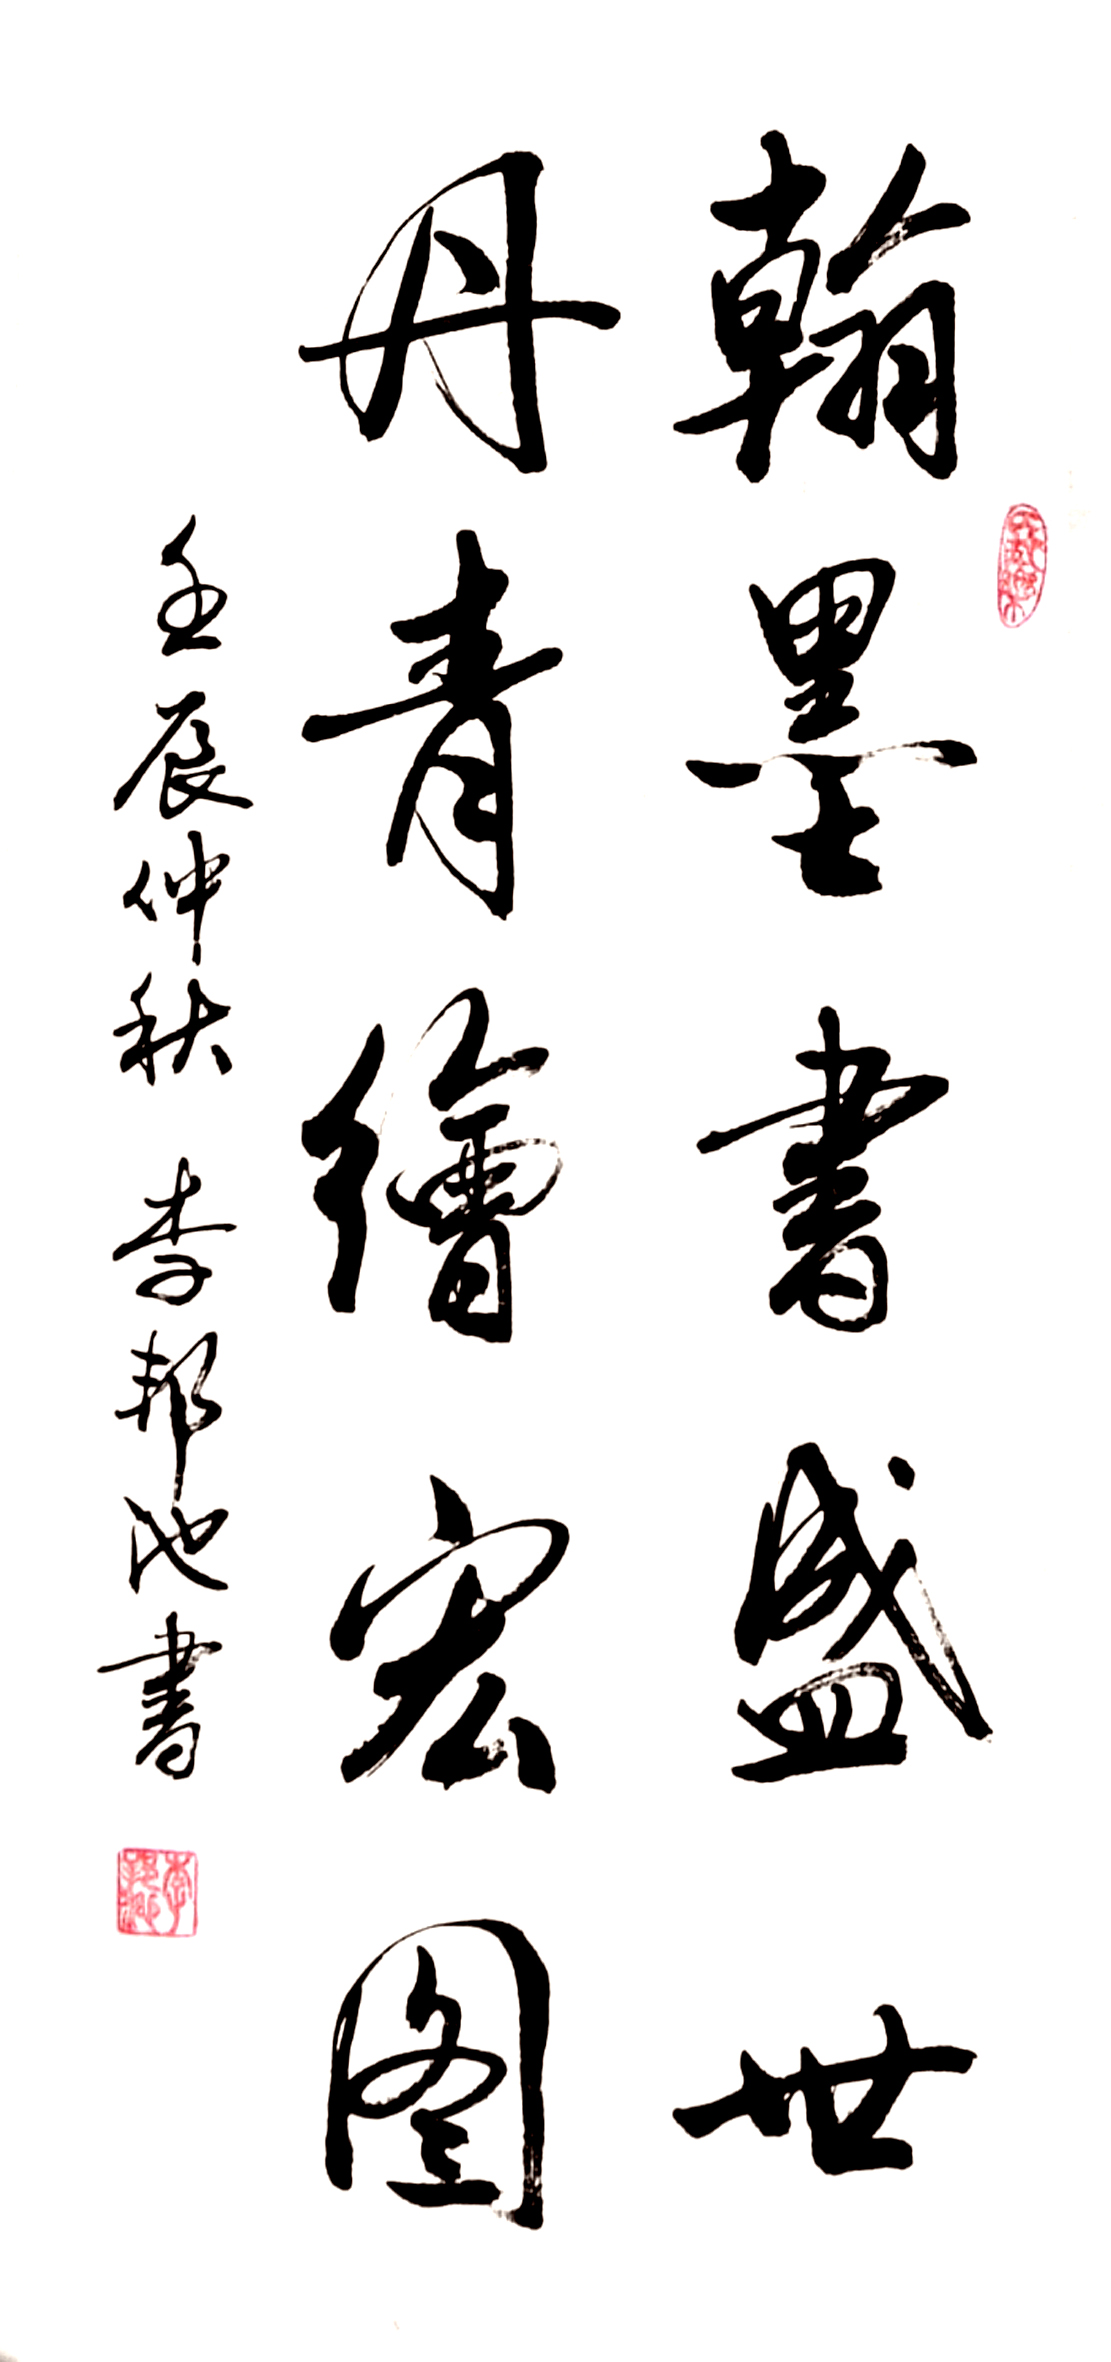 翰墨書盛世
丹青繪宏图
壬辰仲秋 李邦池書